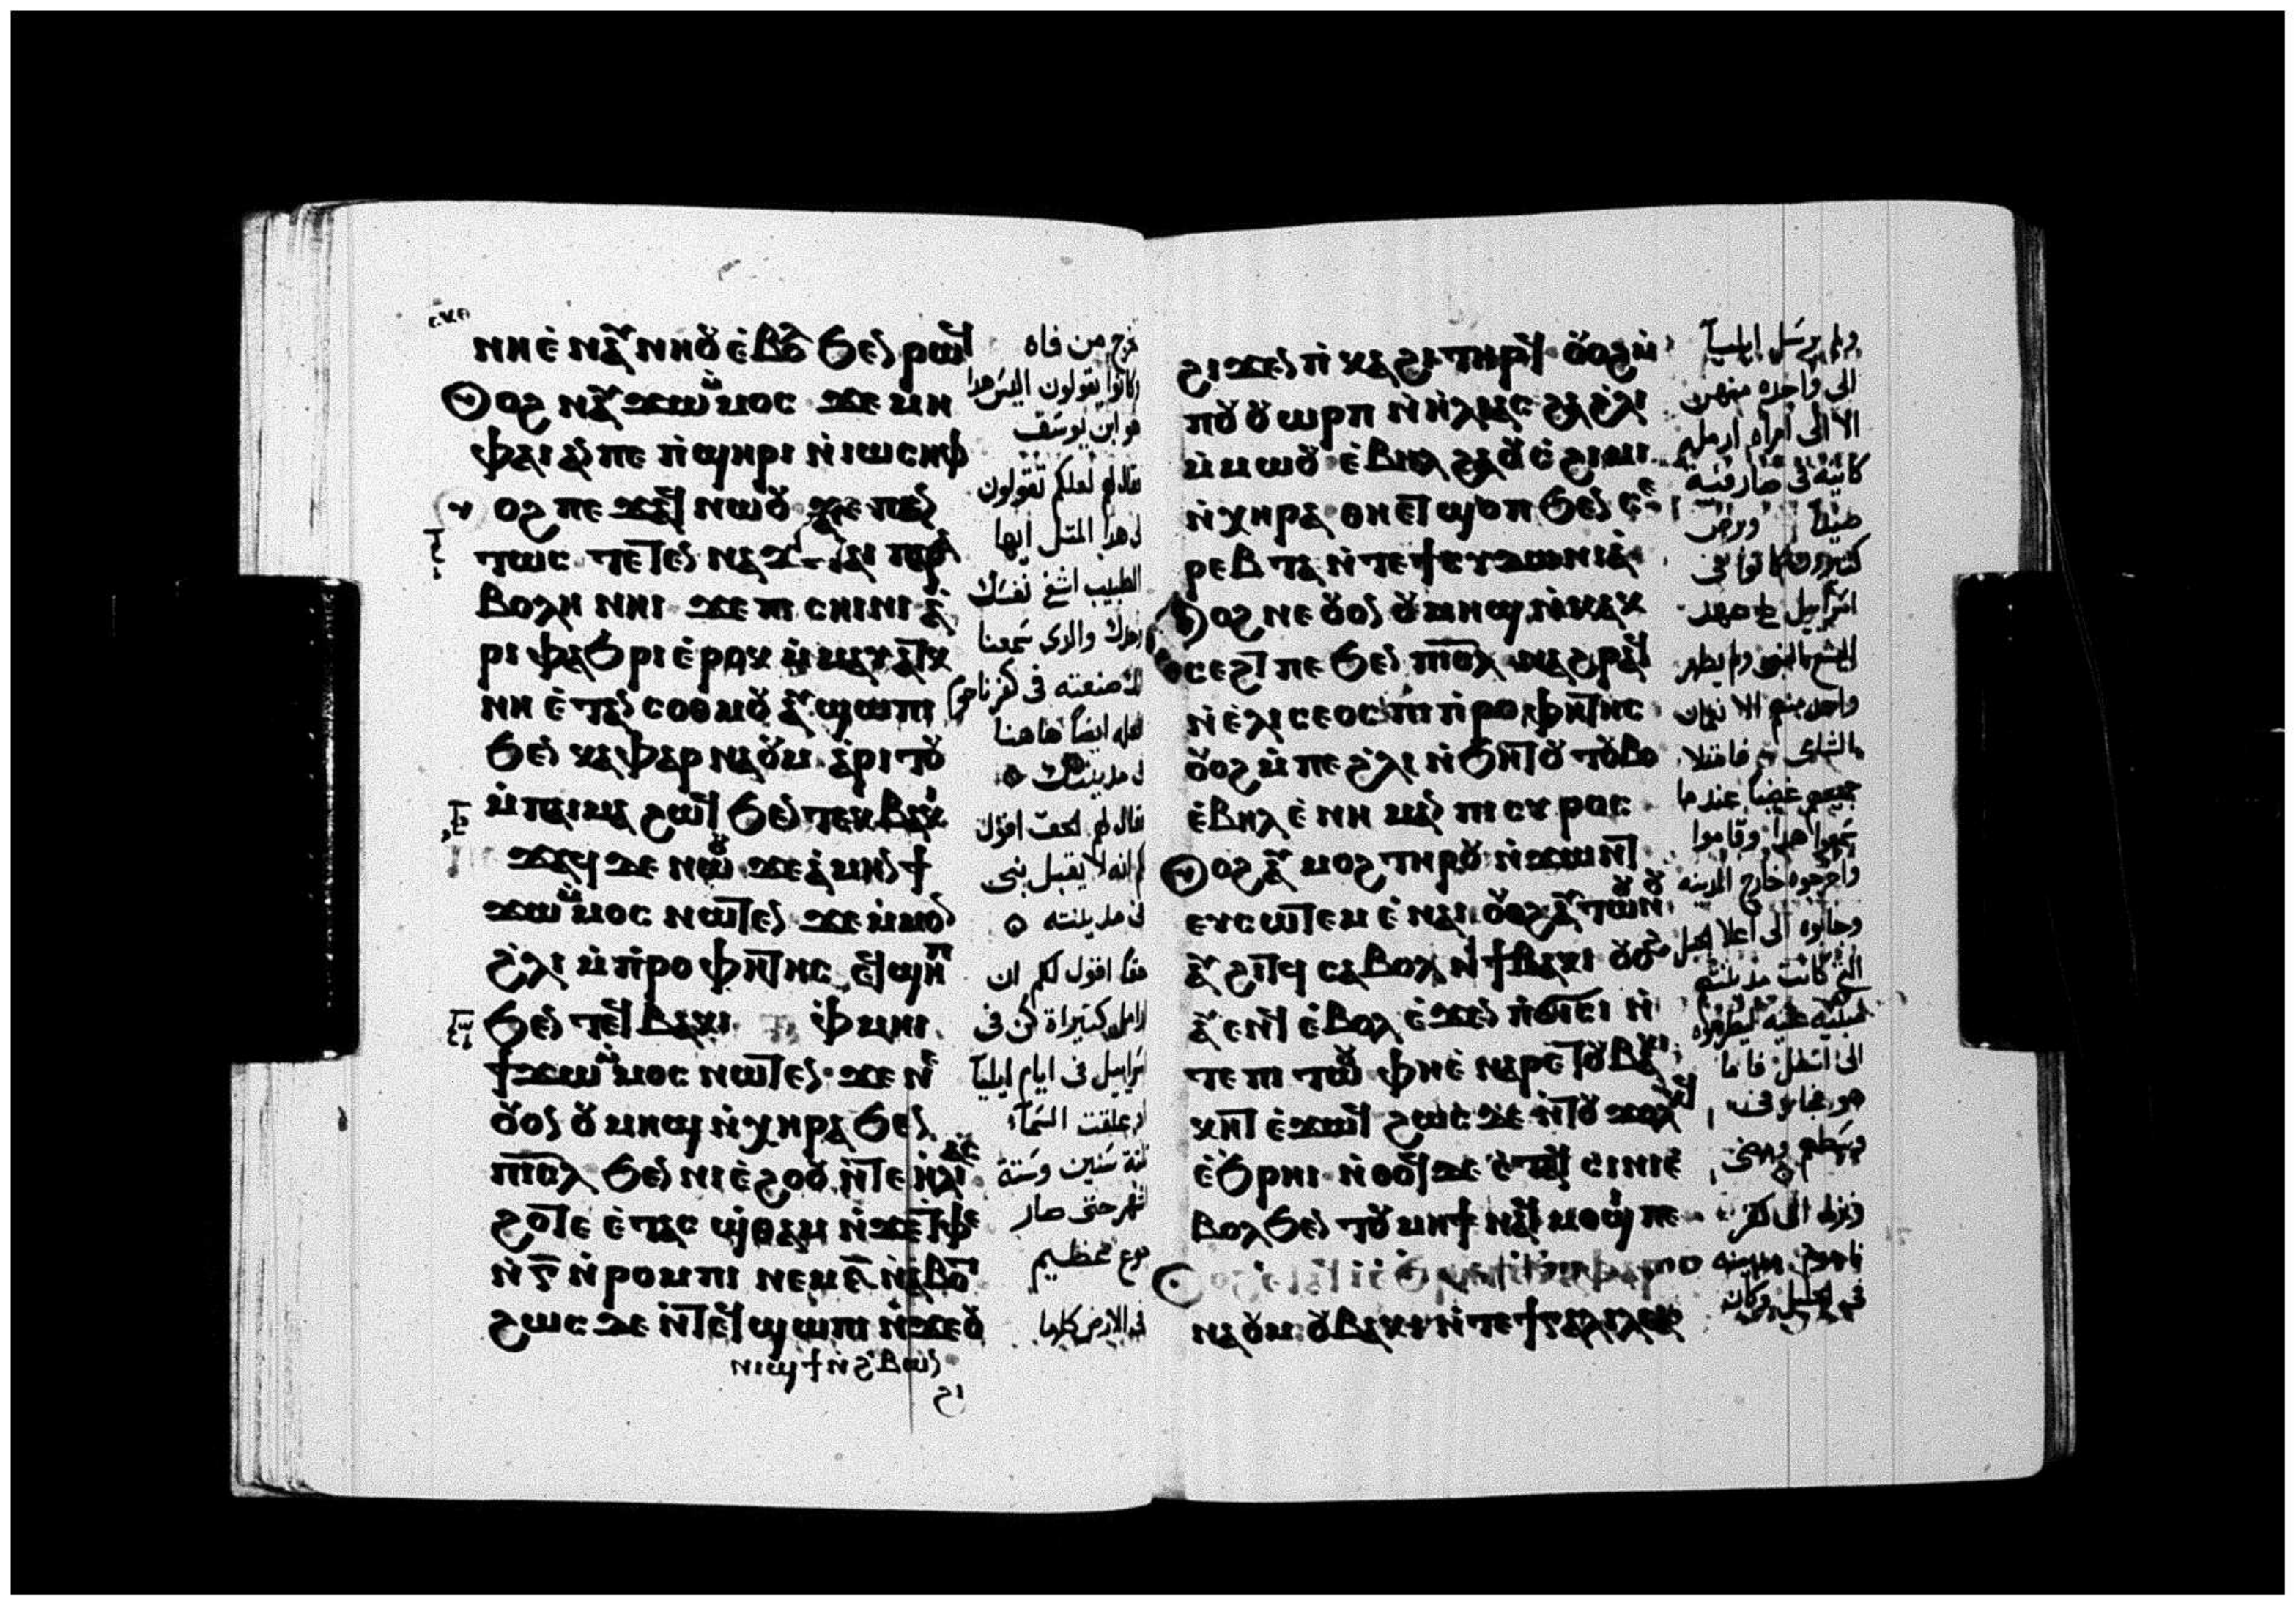 ⲛⲏⲉ̀ ⲛⲁⲩⲛⲏⲟⲩ ⲉ̀ⲃⲟⲗ ϧⲉⲛ ⲣⲱϥ
ⲟⲩⲟϩ ⲛⲁⲩϫⲱ ⲙ̀ⲙⲟⲥ ϫⲉ ⲙⲏ
ⲫⲁⲓ ⲁⲛ ⲡⲉ ⲡ̀ϣⲏⲣⲓ ⲛ̀ⲓⲱⲥⲏⲫ
ⲟⲩⲟϩ ⲡⲉϫⲁϥ ⲛⲱⲟⲩ ϫⲉ ⲡⲁⲛ
ⲧⲱⲥ ⲧⲉⲧⲉⲛ ⲛⲁϫⲉ ⲧⲁⲓ ⲡⲁⲣⲁ
ⲃⲟⲗⲏ ⲛⲏⲓ ϫⲉ ⲡⲓ ⲥⲏⲓⲛⲓ ⲁ̀
ⲣⲓ ⲫⲁϧⲣⲓ ⲉ̀ⲣⲟⲕ ⲙ̀ⲙⲁⲩⲁⲧⲕ
ⲛⲏ ⲉ̀ⲧⲁⲛ ⲥⲟⲑⲙⲟⲩ ⲁⲩϣⲱⲡⲓ
ϧⲉⲛ ⲕⲁⲫⲁⲣⲛⲁⲟⲩⲙ ⲁ̀ⲣⲓⲧⲟⲩ
ⲙ̀ⲡⲁⲓⲙⲁ ϩⲱϥ ϧⲉⲛ ⲧⲉⲕⲃⲁⲕⲓ
ϫⲁϥ ⲇⲉ ⲛⲱⲟⲩ ϫⲉ ⲁ̀ⲙⲏⲛ ϯ
ϫⲱ ⲙ̀ⲙⲟⲥ ⲛⲱⲧⲉⲛ ϫⲉ ⲙ̀ⲙⲟⲛ
ϩ̀ⲗⲓ ⲙ̀ⲡ̀ⲣⲟⲫⲏⲧⲏⲥ ⲉϥϣⲏⲡ
ϧⲉⲛ ⲧⲉϥⲃⲁⲕⲓ ⲫ̀ⲙⲏⲓ
ϯϫⲱ ⲙ̀ⲙⲟⲥ ⲛⲱⲧⲉⲛ ϫⲉ ⲛⲉ
ⲟⲩⲟⲛ ⲟⲩⲙⲏϣ ⲛ̀ⲭⲏⲣⲁ ϧⲉⲛ
ⲡⲓⲥⲗ ϧⲉⲛ ⲛⲓⲉ̀ϩⲟⲟⲩ ⲛ̀ⲧⲉ ⲏ̀ⲗⲓⲁⲥ
ϩⲟⲧⲉ ⲉ̀ⲧⲁⲥ ϣ̀ⲑⲁⲙ ⲛ̀ϫⲉ ⲧ̀ⲫⲉ
ⲛ̀ⲅ̅ ⲛ̀ⲣⲟⲙⲡⲓ ⲛⲉⲙ ⲋ̅ ⲛ̀ⲁ̀ⲃⲟⲧ
ϩⲱⲥ ⲇⲉ ⲛ̀ⲧⲉϥϣⲱⲡⲓ ⲛ̀ϫⲉⲟⲩ
ⲛⲓϣϯ ⲛ̀ϩ̀ⲃⲱⲛ
ϩⲓ
خرج من فاه
وكانوا يقولون اليس هذا
هو ابن يوسف
فقال لهم لعلكم تقولون
لي هذا المثل ايها
الطبيب اشفي نفسك
وحدك والذي سمعنا
انك صنعته في كفرناحوم
افعله ايضاً هاهنا
في مدينتك
فقال لهم الحق اقول
لكم انه لا يقبل نبى
في مدينته
حقاً اقول لكم ان
ارامل كثيراة كن فى
اسراييل في ايام ايلياً
اذ غلقت السمآء
ثلثة سنين وستة
اشهر حتى صار
جوع عظيم
في الارض كلها
ϩⲓϫⲉⲛ ⲡ̀ⲕⲁϩⲓ ⲧⲏⲣϥ ⲟⲩⲟϩ ⲙ̀
ⲡⲟⲩ ⲟⲩⲱⲣⲡ ⲛ̀ⲏ̀ⲗⲓⲁⲥ ϩⲁ ϩ̀ⲗⲓ
ⲙ̀ⲙⲱⲟⲩ ⲉ̀ⲃⲏⲗ ϩⲁ ⲟⲩⲥ̀ϩⲓⲙⲓ
ⲛ̀ⲭⲏⲣⲁ ⲑⲏⲉⲧϣⲟⲡ ϧⲉⲛ ⲥⲉ
ⲣⲉⲃⲧⲁ ⲛ̀ⲧⲉ ϯⲥⲩⲇⲱⲛⲓⲁ
ⲟⲩⲟϩ ⲛⲉ ⲟⲩⲟⲛ ⲟⲩⲙⲏϣ ⲛ̀ⲕⲁⲕ
ⲥⲉϩⲧ ⲡⲉ ϧⲉⲛ ⲡⲓⲥⲗ ⲛⲁϩⲣⲁϥ
ⲛ̀ⲉ̀ⲗⲓⲥⲉⲟⲥ ⲡⲓ ⲡ̀ⲣⲟⲫⲏⲧⲏⲥ
ⲟⲩⲟϩ ⲙ̀ⲡⲉ ϩ̀ⲗⲓ ⲛ̀ϧⲏⲧⲟⲩ ⲧⲟⲩⲃⲟ
ⲉ̀ⲃⲏⲗ ⲉ̀ ⲛⲏⲙⲁⲛ ⲡⲓ ⲥⲩⲣⲟⲥ
ⲟⲩⲟϩ ⲁⲩⲙⲟϩ ⲧⲏⲣⲟⲩ ⲛ̀ϫⲱⲛⲧ
ⲉⲩⲥⲱⲧⲉⲙ ⲉ̀ ⲛⲁⲓ ⲟⲩⲟϩ ⲁⲩⲧⲱⲟⲩⲛⲟⲩ
ⲁⲩϩⲓⲧϥ ⲥⲁⲃⲟⲗ ⲛ̀ϯⲃⲁⲕⲓ ⲟⲩⲟϩ
ⲁⲩⲉⲛϥ ⲉ̀ⲃⲟⲗ ⲉ̀ϫⲉⲛ ⲡ̀ϭⲓⲥⲓ ⲛ̀
ⲧⲉ ⲡⲓ ⲧⲱⲟⲩ ⲫⲏⲉ̀ ⲛⲁⲣⲉ ⲧⲟⲩⲃⲁⲕⲓ
ⲕⲏⲧ ⲉ̀ϫⲱϥ ϩⲱⲥ ⲇⲉ ⲛ̀ⲧⲟⲩ ϫⲟⲗϫϥ
ⲉ̀ϧⲣⲏⲓ ⲛ̀ⲑⲟϥ ⲇⲉ ⲉ̀ⲧⲁϥ ⲥⲓⲛⲓ ⲉ̀
ⲃⲟⲗ ϧⲉⲛ ⲧⲟⲩⲙⲏϯ ⲛⲁϥⲙⲟϣⲓ ⲡⲉ
ⲛⲁⲟⲩⲙ ⲟⲩⲃⲁⲕⲓ ⲛ̀ⲧⲉ ϯⲅⲁⲗⲓⲗⲉⲁ
ولم يرسل ايلياً
الى واحده منهن
الا الى امرأه ارمله
كانيه في صارفيه
صيدا وبرص
كثيرون كانوا فى
اسراييل على عهد
اليشع النبى ولم يطهر
واحد منهم الا نعمان
الشامي فامتلا
جميعهم غضباً عندما
سمعوا هذا وقاموا
واخرجوه خارج المدينه
وجاءوه الى اعلا الجبل
التي كانت مدينتهم
مبنيه عليه ليطرحوه
الى اسفل فاما
هو فجاز في
وسطهم ومضى
ونزل الى كفر
ناحوم مدينه
في الجليل وكان